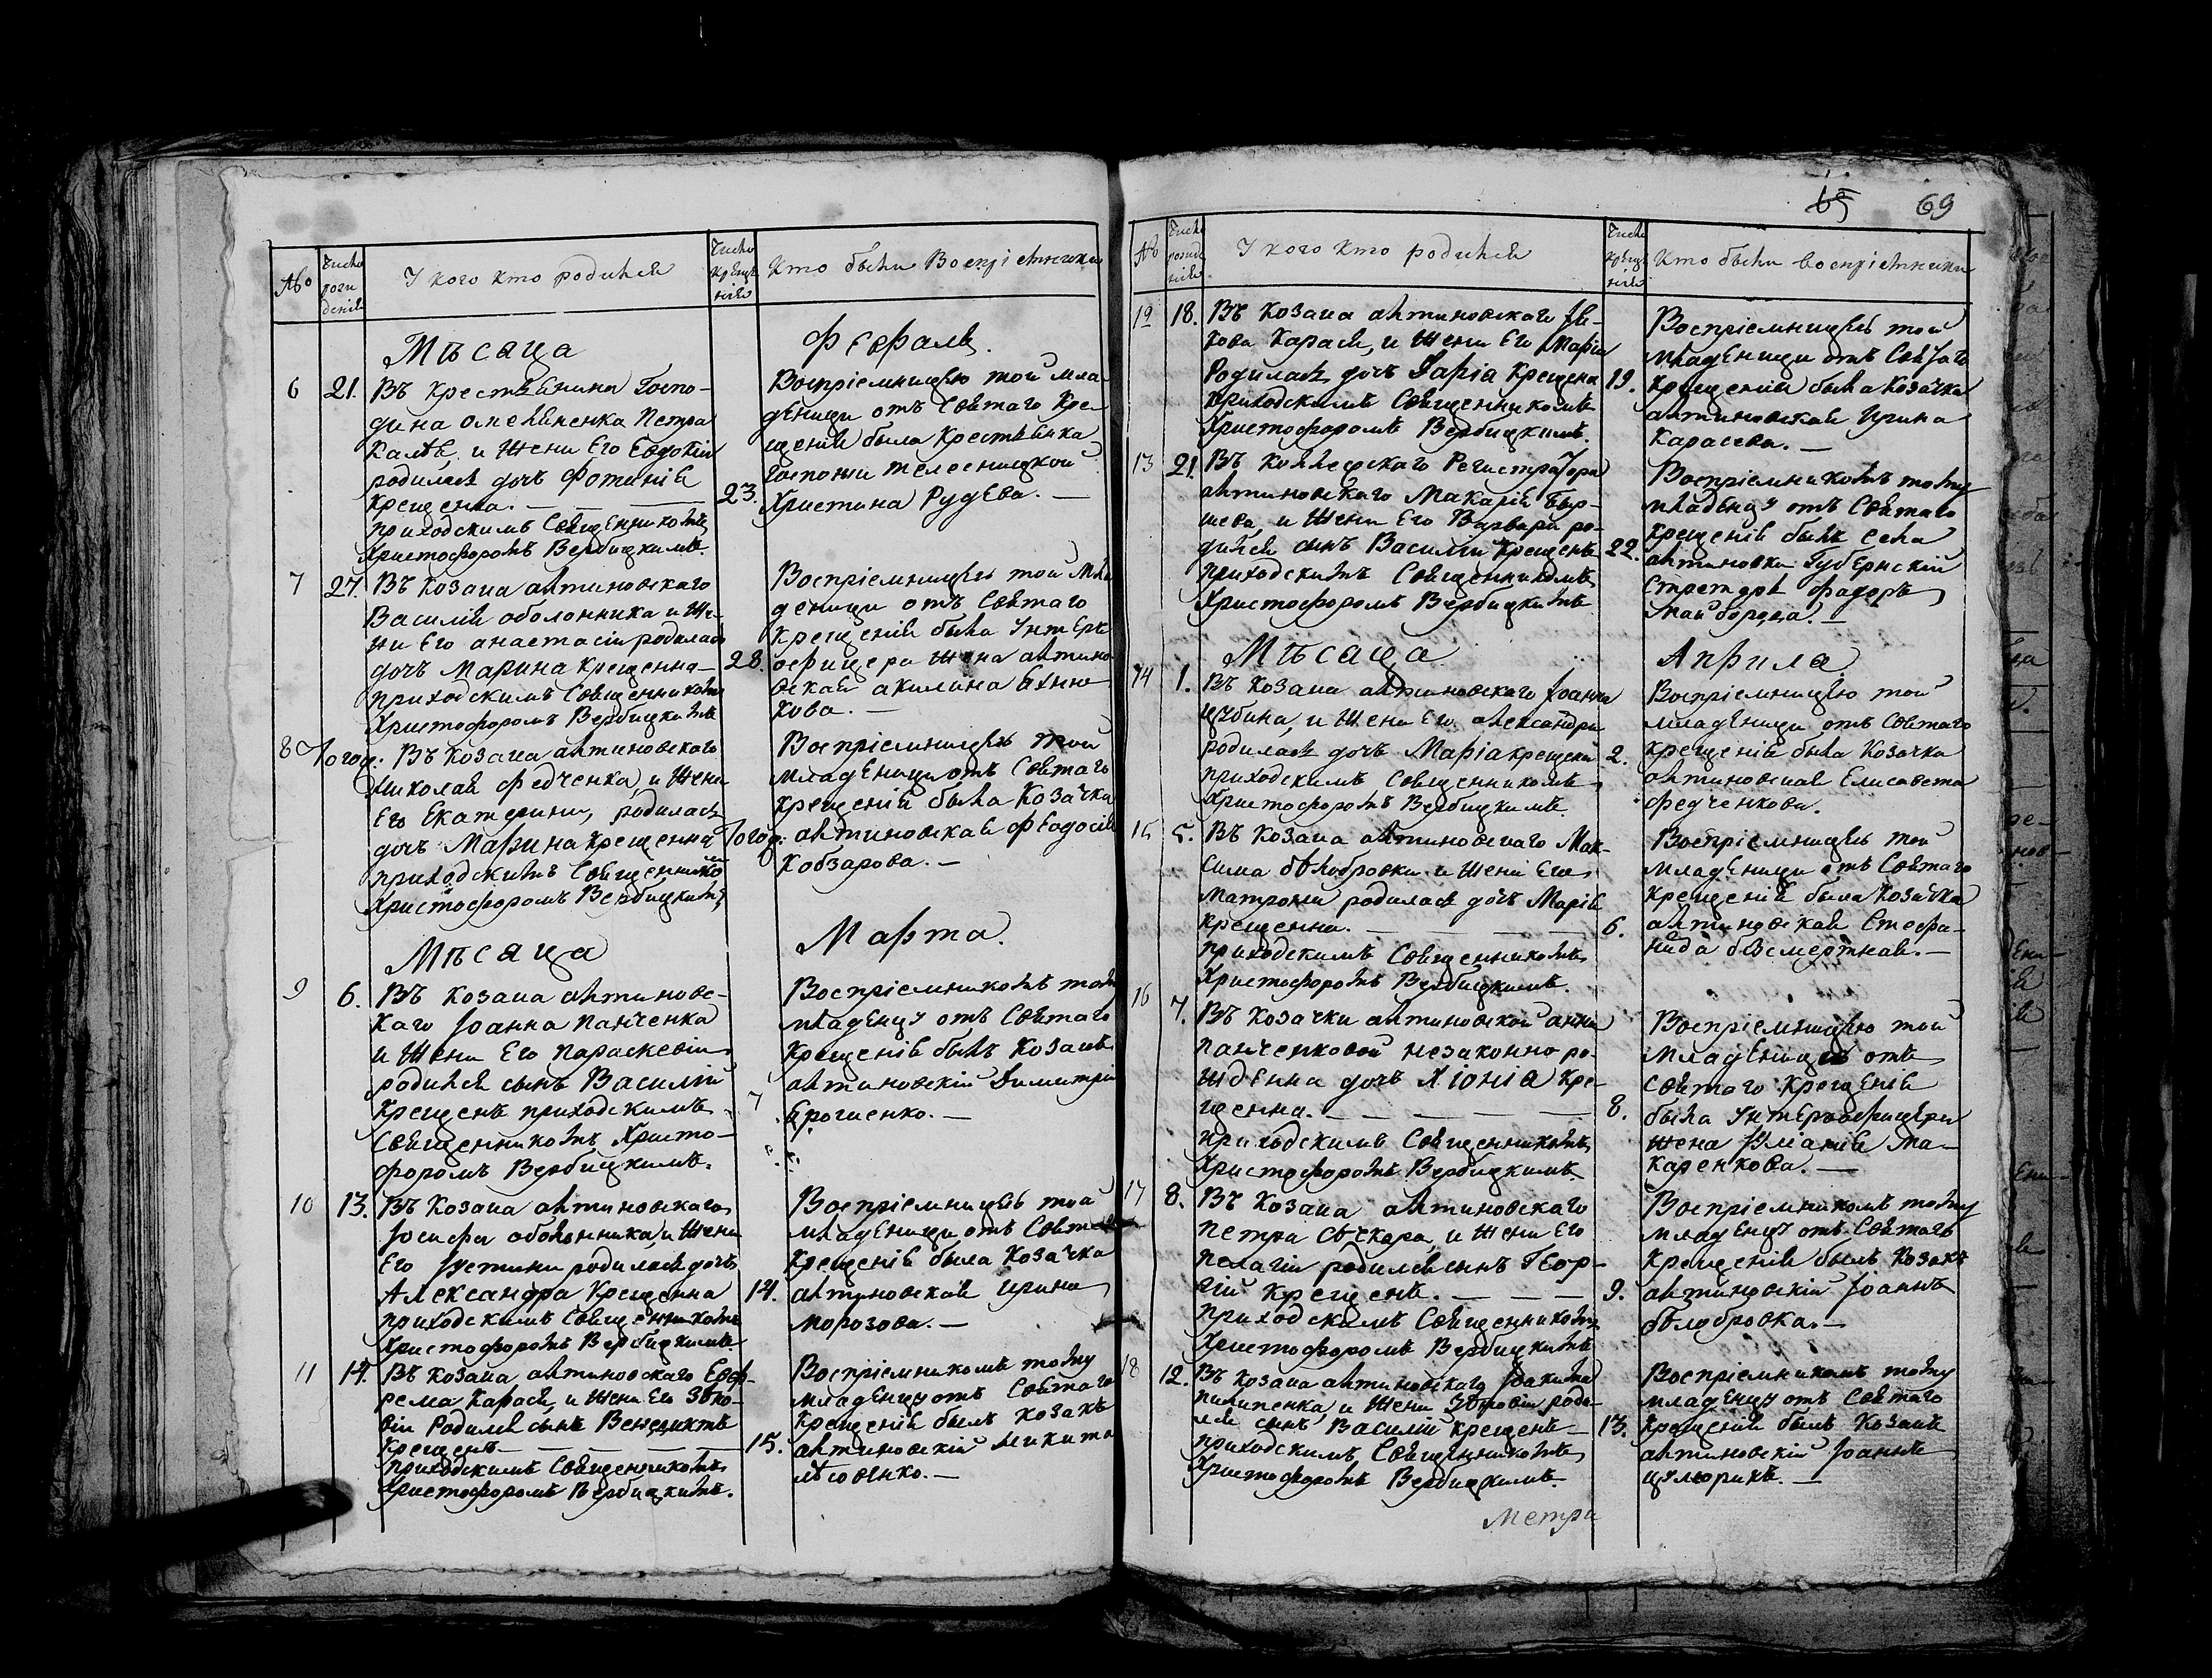 65 69
№
Число рождения
У кого кто родился
Число крещения
Кто были Восприемники
Мѣсяца
Февраля.
6 21. Въ Крестьянина Госпо-
дина Омельяненка Петра
и жени Его Евдокіи
родилася дочъ Фотинія
Крещенна.
приходскимъ Священникомъ
Христофоромъ Вербицкимъ.
23.
Воспріемницею той мла
деници отъ Святаго Кре
щенія была Крестьянка
Госпожи
Христина Рудева.
7 27. Въ Козака алтиновскаго
Василія оболонника и Же-
ни Его анастасіи родилась
дочъ Марина крещенна
приходскимъ Священникомъ
Христофоромъ Вербицкимъ
28.
Воспріемницею той Мла
деници отъ Святаго
крещенія была Унтеръ
офицера Жена алтино
вская акилина
кова.
8 Того ч: Въ Козака алтиновскаго
Николая Федченка, и Жени
Его Екатерини, родилась
дочъ Марина крещенна
приходскимъ Священникомъ
Христофоромъ Вербицкимъ
Того ч:
Воспріемницею той
младеници отъ Святаго
крещенія была Козачка
алтиновская Феодосія
Кобзарова.
Мѣсяца
Марта.
9 6. Въ Козака алтиновс-
каго Іоанна Панченка
и Жени Его Параскевіи
родился сынъ Василій
Крещенъ приходскимъ
Священникомъ Христо-
форомъ Вербицкимъ.
7
Воспріемникомъ тому
младенцу отъ Святаго
Крещенія былъ Козакъ
алтиновскій Димитрій
Ярошенко.
10 13. Въ Козака алтиновскаго
Іосифа оболонника, и Жени
Его Іустини родилася дочъ
Александра Крещенна
приходскимъ Священникомъ
Христофоромъ Вербицкимъ.
14.
Воспріемницею той
младеници отъ Святаго
Крещенія была Козачка
алтиновская Ирина
морозова.
11 14. Въ Козака алтиновскаго Евф-
рема Карася, и Жени Его Зѣно-
віи Родился сынъ Венедиктъ
Крещенъ
приходскимъ Священникомъ
Христофоромъ Вербицкимъ.
15.
Воспріемникомъ тому
младенцу отъ Святаго
Крещенія былъ Козакъ
алтиновскій Никита
№
Число рождения
У кого кто родился
Число крещения
Кто были восприемники
12 18. Въ Козака алтиновскаго Іа-
кова Карася, и Жени Его Маріи
Родилась дочъ Дарія Крещена
Приходскимъ Священникомъ
Христофоромъ Вербицкимъ.
19.
Воспріемницею той
младеници отъ Святаго
Крещенія была Козачка
алтиновская Ирина
Карасева.
13 21. Въ Коллежскаго Регистратора
алтиновскаго Макарія
и Жени Его Варвари ро-
дился сынъ Василій Крещенъ
приходскимъ Священникомъ
Христофоромъ Вербицкимъ
22.
Воспріемникомъ тому
младенцу отъ Святаго
крещенія былъ села
алтиновки Губернскій
Секретарь Федоръ
Майборода.
Мѣсяца
Априла
14 1. Въ Козака алтиновскаго Іоанна
и Жени Его александри
родилась дочъ Марія крещена
приходскимъ Священникомъ
Христофоромъ Вербицкимъ.
2.
Воспріемницею той
младеници отъ Святаго
крещенія была Козачка
алтиновская Елисавета
Федченкова.
15 5. Въ Козака алтиновскаго Мак-
сима бѣлобровки и Жени Его
Матрони родилася дочъ Марія
Крещенна.
приходскимъ Священникомъ
Христофоромъ Вербицкимъ.
6.
Воспріемницею той
младеници отъ Святаго
Крещенія была Козачка
алтиновская Стефа-
нида безсмертная.
16 7. Въ Козачки алтиновской анни
панченковой незаконно ро-
жденна дочъ Хіонія Кре-
щенна.
приходскимъ Священникомъ
Христофоромъ Вербицкимъ
8.
Воспріемницею той
младеници отъ
Святаго Крещенія
была Унтеръ офицера
жена Іуліанія Ма-
каренкова.
17 8. Въ Козака алтиновскаго
петра Сѣчкара, и Жени Его
пелагіи родился сынъ Геор-
гій Крещенъ.
приходскимъ Священникомъ
Христофоромъ Вербицкимъ
9.
Воспріемникомъ тому
младенцу отъ Святаго
Крещенія былъ Козакъ
алтиновскій Іоаннъ
бѣлобровка.
18 12. Въ Козака алтиновскаго Іоакима
пилипенка, и Жени роди
лся сынъ Василій Крещенъ
приходскимъ Священникомъ
Христофоромъ Вербицкимъ.
13.
Воспріемникомъ тому
младенцу отъ Святаго
Крещенія былъ Козакъ
алтиновскій Іоаннъ
цулюрикъ.
Метри